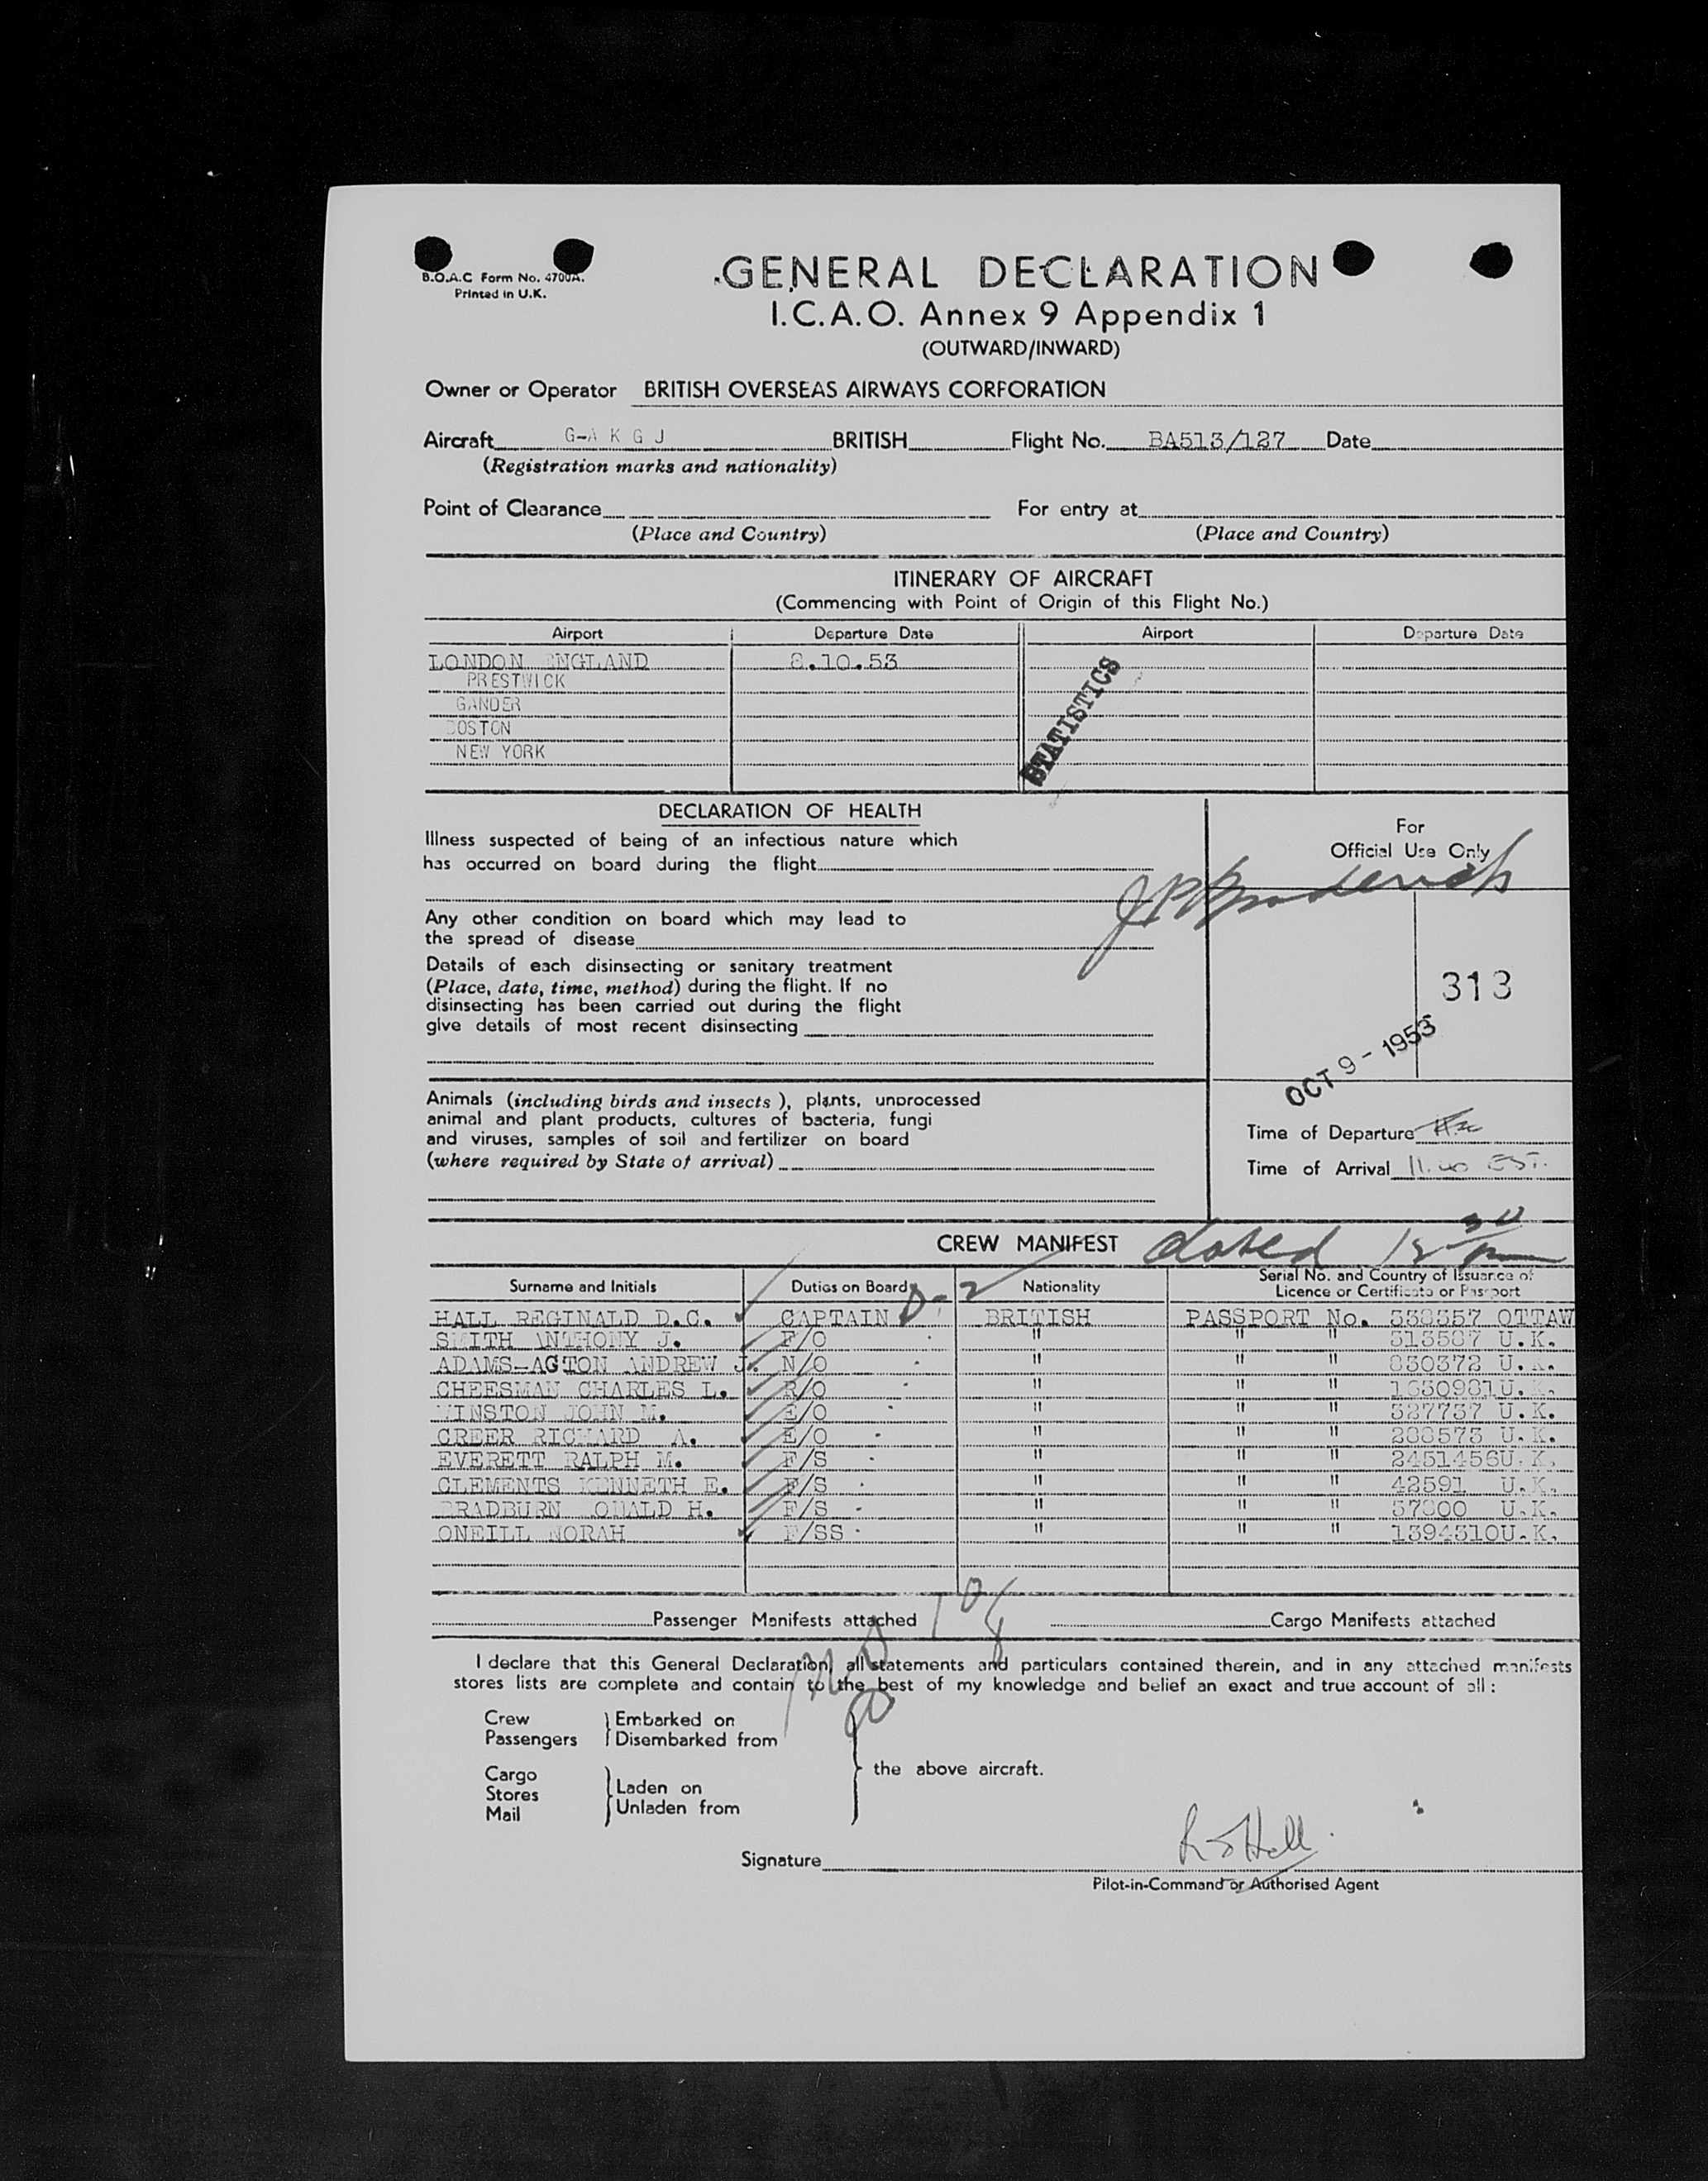 B.O.A.C Form No. 4700A.
Printed in U.K.
GENERAL DECLARATION
I.C.A.O. Annex 9 Appendix 1
(OUTWARD/INWARD)
Owner or Operator BRITISH OVERSEAS AIRWAYS CORPORATION
Aircraft G-A K G J BRITISH Flight No. BA513/127 Date
(Registration marks and nationality)
Point of Clearance For entry at
(Place and Country) (Place and Country)
ITINERARY OF AIRCRAFT
(Commencing with Point of Origin of this Flight No.)
Airport Departure Date Airport Departure Date
LONDON ENGLAND 8.10.53
PRESTWICK
GANDER
BOSTON
NEW YORK
STATISTICS
DECLARATION OF HEALTH
Illness suspected of being of an infectious nature which
has occurred on board during the flight
For
Official Use Only
Any other condition on board which may lead to
the spread of disease
Details of each disinsecting or sanitary treatment
(Place, date, time, method) during the flight. If no
disinsecting has been carried out during the flight
give details of most recent disinsecting
313
OCT 9 - 1953
Animals (including birds and insects), plants, unprocessed
animal and plant products, cultures of bacteria, fungi
and viruses, samples of soil and fertilizer on board
(where required by State of arrival)
Time of Departure
Time of Arrival 11.40 EST.
CREW MANIFEST
Surname and Initials Duties on Board Nationality Serial No. and Country of Issuance of
Licence or Certificate or Passport
HALL REGINALD D.C. CAPTAIN BRITISH PASSPORT No. 338357 OTTAW
SMITH ANTHONY J. F/O " " " 313507 U.K.
ADAMS-ACTON ANDREW J. N/O " " " 830372 U.K.
CHEESMAN CHARLES L. R/O " " " 1630981U.K.
WINSTON JOHN M. E/O " " " 327737 U.K.
CREER RICHARD A. E/O " " " 288573 U.K.
EVERETT RALPH M. F/S " " " 2451456U.K.
CLEMENTS KENNETH E. F/S " " " 42591 U.K.
BRADBURN RONALD H. F/S " " " 57800 U.K.
ONEILL NORAH F/SS " " " 1394310U.K.
Passenger Manifests attached Cargo Manifests attached
I declare that this General Declaration, all statements and particulars contained therein, and in any attached manifests
stores lists are complete and contain to the best of my knowledge and belief an exact and true account of all:
Crew Embarked on
Passengers Disembarked from
the above aircraft.
Cargo
Stores Laden on
Mail Unladen from
Signature
Pilot-in-Command or Authorised Agent